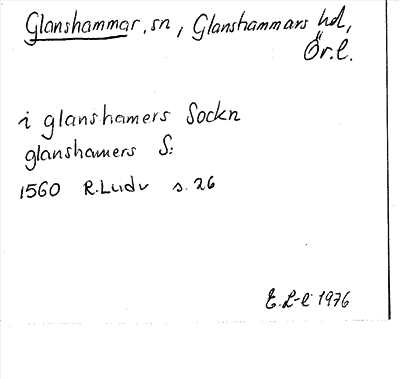 Glanshammar, sn, Glanshammars hd,
Ör. l.
i glanshamers Sockn
glanshamers S:
1560 R. Ludv s. 26
E. L-e 1976